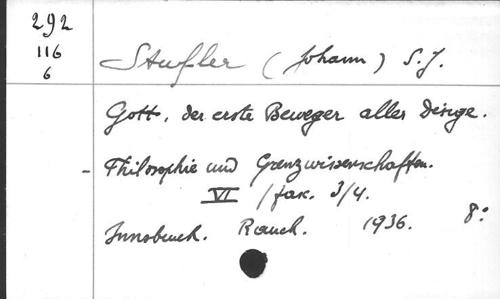 292
116
6
Stufler (Johann) S.J.
Gott, der erste Beweger aller Dinge.
- Philosophie und Grenzwissenschaften.
VI / fasc. 3/4.
Innsbruck. Rauch. 1936. 8: